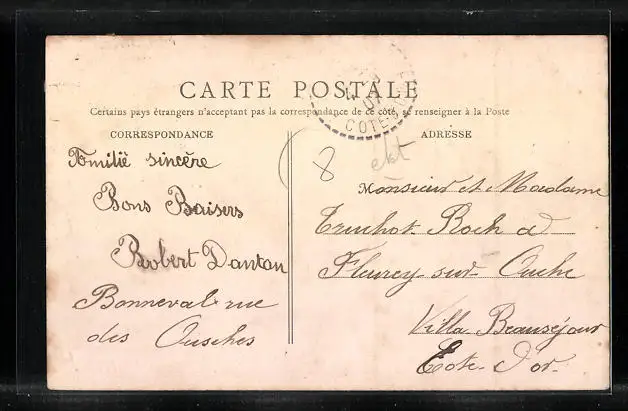 CARTE POSTALE
Certains pays étrangers n'acceptant pas la correspondance de ce côté, se renseigner à la Poste
CORRESPONDANCE
Amitié sincère
Bons Baisers
Robert Dantan
Bonneval rue
des Ousches
ADRESSE
8
Monsieur et Madame
Roch à
Fleurey-sur-Ouche
Villa Beauséjour
Cote-d'or.
07
COTE